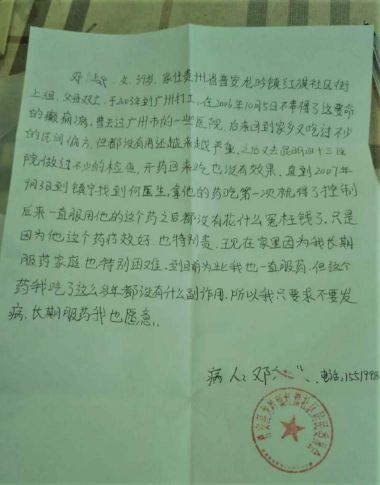 邓 女. 家住贵州省普安龙吟镇红旗社区街
上组. 父母双亡. 于2005年到广州打工. 在2006年10月5日不幸得了这要命
的癫痫病, 曾去过广州市的一些医院, 后来回到家乡又吃过不少
的民间偏方. 但都没有用还越来越严重. 之后又去昆明四十三医
院做过不少的检查, 开药回来吃也没有效果, 直到2007年
9月3日到镇宁找到何医生, 拿他的药吃第一次就得了控制
后来一直服用他的这个药之后都没有花什么冤枉钱了, 只是
因为他这个药疗效好. 也特别贵. 现在家里因为我长期
服药家庭也特别困难. 到目前为止我也一直服药. 但这个
药我吃了这么多年都没有什么副作用. 所以我只要求不要发
病, 长期服药我也愿意.
病人: 邓 电话: 1551998